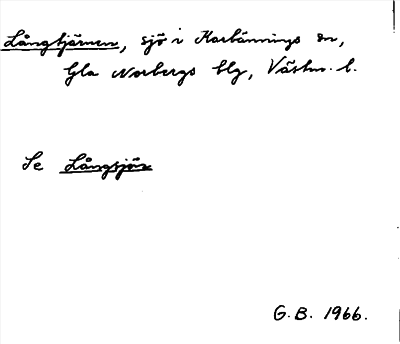 Långtjärnen, sjö i Karbennings sn,
Gla Norbergs blg, Västm. l.
Se Långsjön
G.B. 1966.